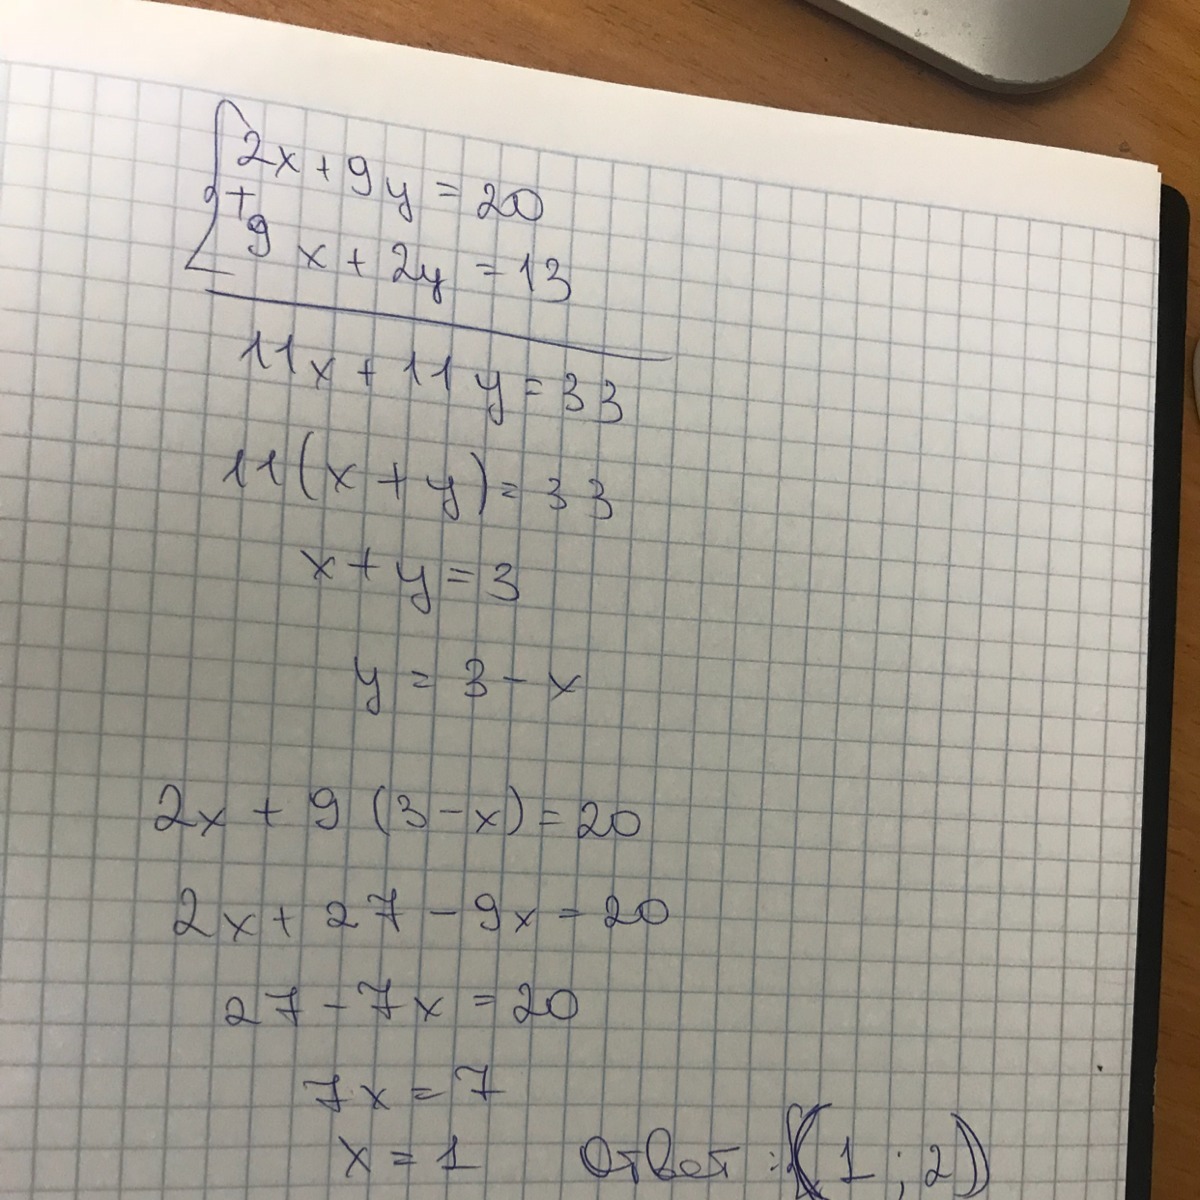 2x + 9y = 20
+
9x + 2y = 13
11x + 11y = 33
11(x + y) = 33
x + y = 3
y = 3 - x
2x + 9(3 - x) = 20
2x + 27 - 9x = 20
27 - 7x = 20
7x = 7
x = 1 Ответ: (1; 2)